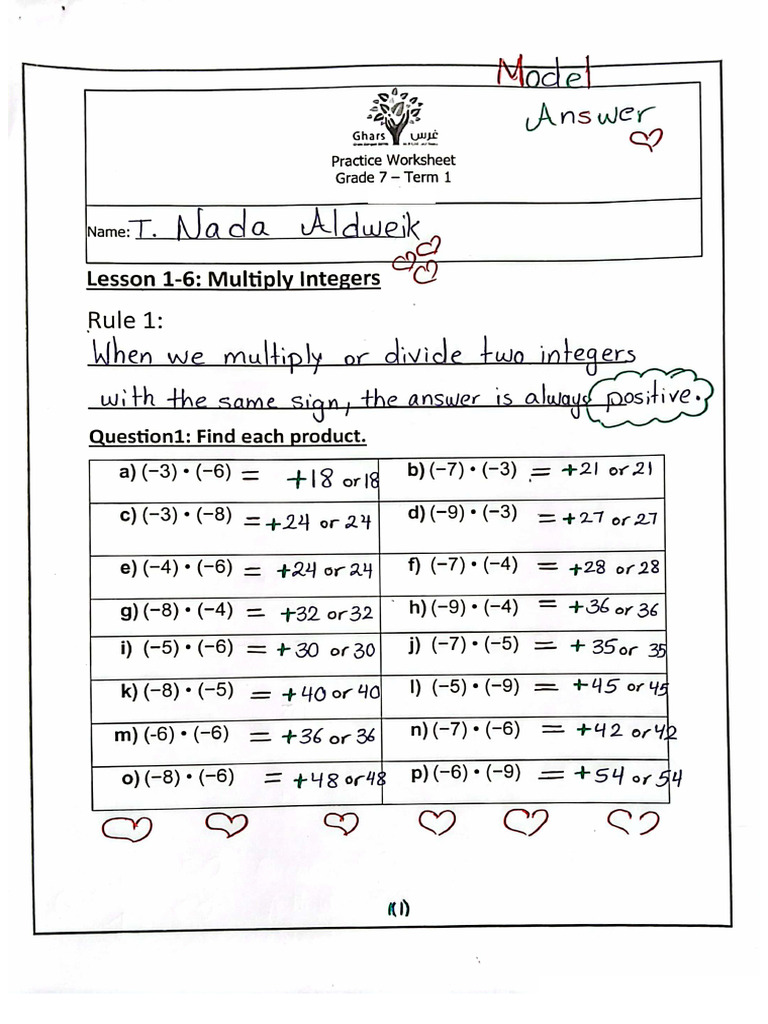 Model
Answer
Ghars غرس
Practice Worksheet
Grade 7 – Term 1
Name: T. Nada Aldweik
Lesson 1-6: Multiply Integers
Rule 1:
When we multiply or divide two integers
with the same sign, the answer is always positive.
Question1: Find each product.
a) (−3) • (−6) = +18 or 18 b) (−7) • (−3) = +21 or 21
c) (−3) • (−8) = +24 or 24 d) (−9) • (−3) = +27 or 27
e) (−4) • (−6) = +24 or 24 f) (−7) • (−4) = +28 or 28
g) (−8) • (−4) = +32 or 32 h) (−9) • (−4) = +36 or 36
i) (−5) • (−6) = +30 or 30 j) (−7) • (−5) = +35 or 35
k) (−8) • (−5) = +40 or 40 l) (−5) • (−9) = +45 or 45
m) (-6) • (−6) = +36 or 36 n) (−7) • (−6) = +42 or 42
o) (−8) • (−6) = +48 or 48 p) (−6) • (−9) = +54 or 54
(1)